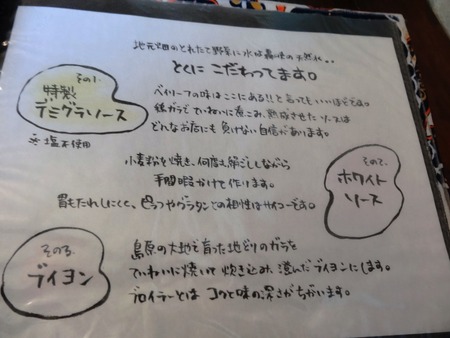 地元畑のとれたて野菜に水は島原の天然水..
とくに こだわってます。
その1.
特製
デミグラソース
※塩不使用
ベイリーフの味はここにある!!と言ってもいいほどです。
鶏ガラでていねいに煮こみ、熟成させたソースは
どんなお店にも負けない自信があります。
小麦粉を焼き、何度も絹ごししながら
手間暇かけて作ります。
胃もたれしにくく、ピラフやグラタンでの相性はサイコーです。
その2.
ホワイト
ソース
その3.
ブイヨン
島原の大地で育った地どりのガラを
ていねいに焼いて炊き込み、澄んだブイヨンにします。
ブロイラーとは コクと味の深さがちがいます。